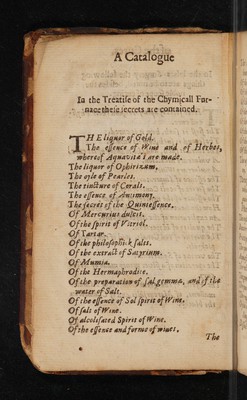 A Catalogue
In the Treatise of the Chymicall Fur-
nace these secrets are contained.
THE liquor of Gold.
The essence of Wine and of Herbes,
whereof Aquavita's are made.
The liquor of Ophirizum.
The oyle of Pearles.
The tincture of Coralt.
The essence of Antimony.
The secret of the Quintessence.
Of Mercurius dulcis.
Of the spirit of Vitriol.
Of Tartar.
Of the philosophick salts.
Of the extract of Satyrium.
Of Mumia.
Of the Hermaphrodite.
Of the preparation of sal gemma, and of the
water of Salt.
Of the essence of Sol spirit of Wine.
Of salt of Wine.
Of alcolisated Spirit of Wine.
Of the essence and formes of wines.
The